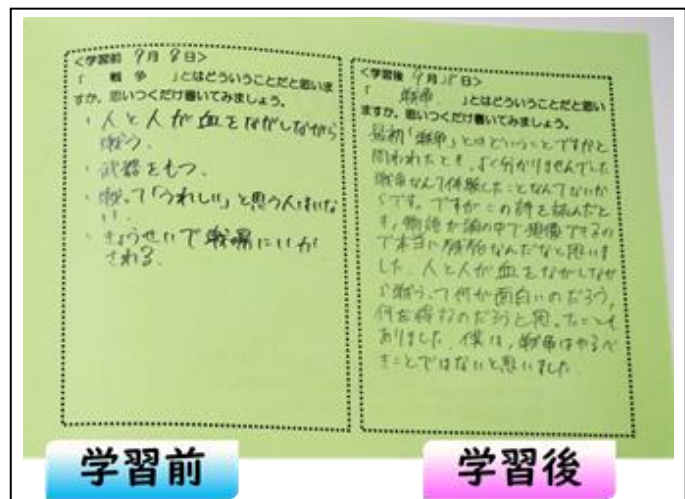 <学習前 9月8日>
「 戦争 」とはどういうことだと思いま
すか。思いつくだけ書いてみましょう。
・人と人が血をながしながら
戦う。
・武器をもつ。
・戦って「うれしい」と思う人はいな
い。
・きょうせいで戦場にいか
される。
<学習後 9月15日>
「 戦争 」とはどういうことだと思い
ますか。思いつくだけ書いてみましょう。
最初「戦争」とはどういうことですかと
問われたとき、よく分かりませんでした
戦争なんて体験したことなんてないか
らです。ですがこの詩を読んだと
き、物語が頭の中で想像できるの
で本当に残酷なんだなと思いま
した。人と人が血をながしなが
ら戦うって何が面白いのだろう、
何を得るのだろうと思ったことも
ありました。僕は、戦争はやるべ
きことではないと思いました。
学習前
学習後